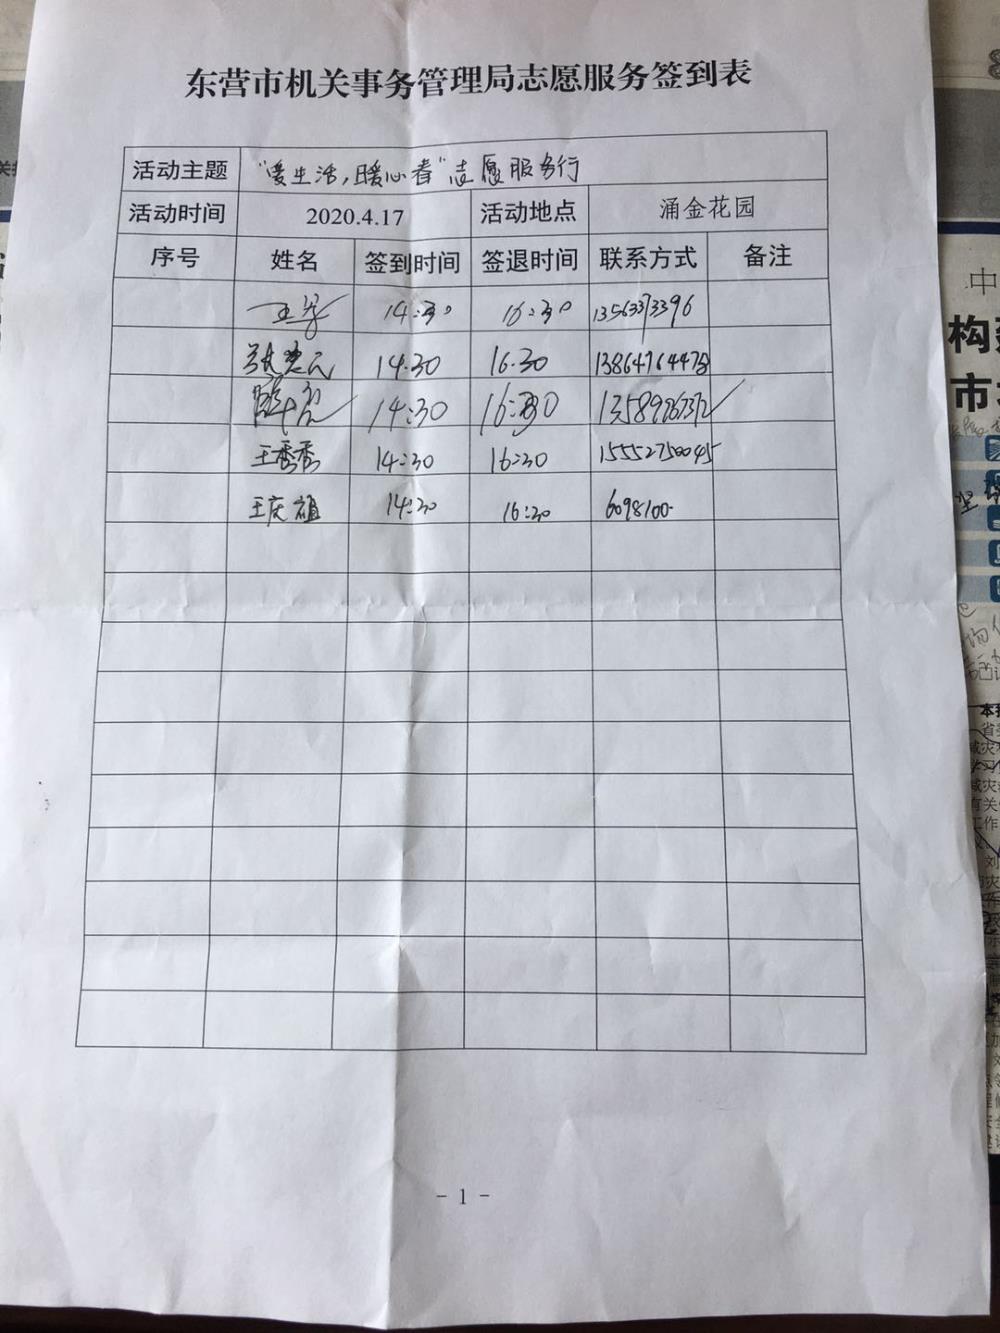 东营市机关事务管理局志愿服务签到表
活动主题 "爱生活,暖心春"志愿服务行
活动时间 2020.4.17 活动地点 涌金花园
序号 姓名 签到时间 签退时间 联系方式 备注
14:30 16:30 13563373396
14:30 16:30
14:30 16:30
王秀秀 14:30 16:30 15552750045
王庆祖 14:30 16:30 6098100
- 1 -
中
构
市